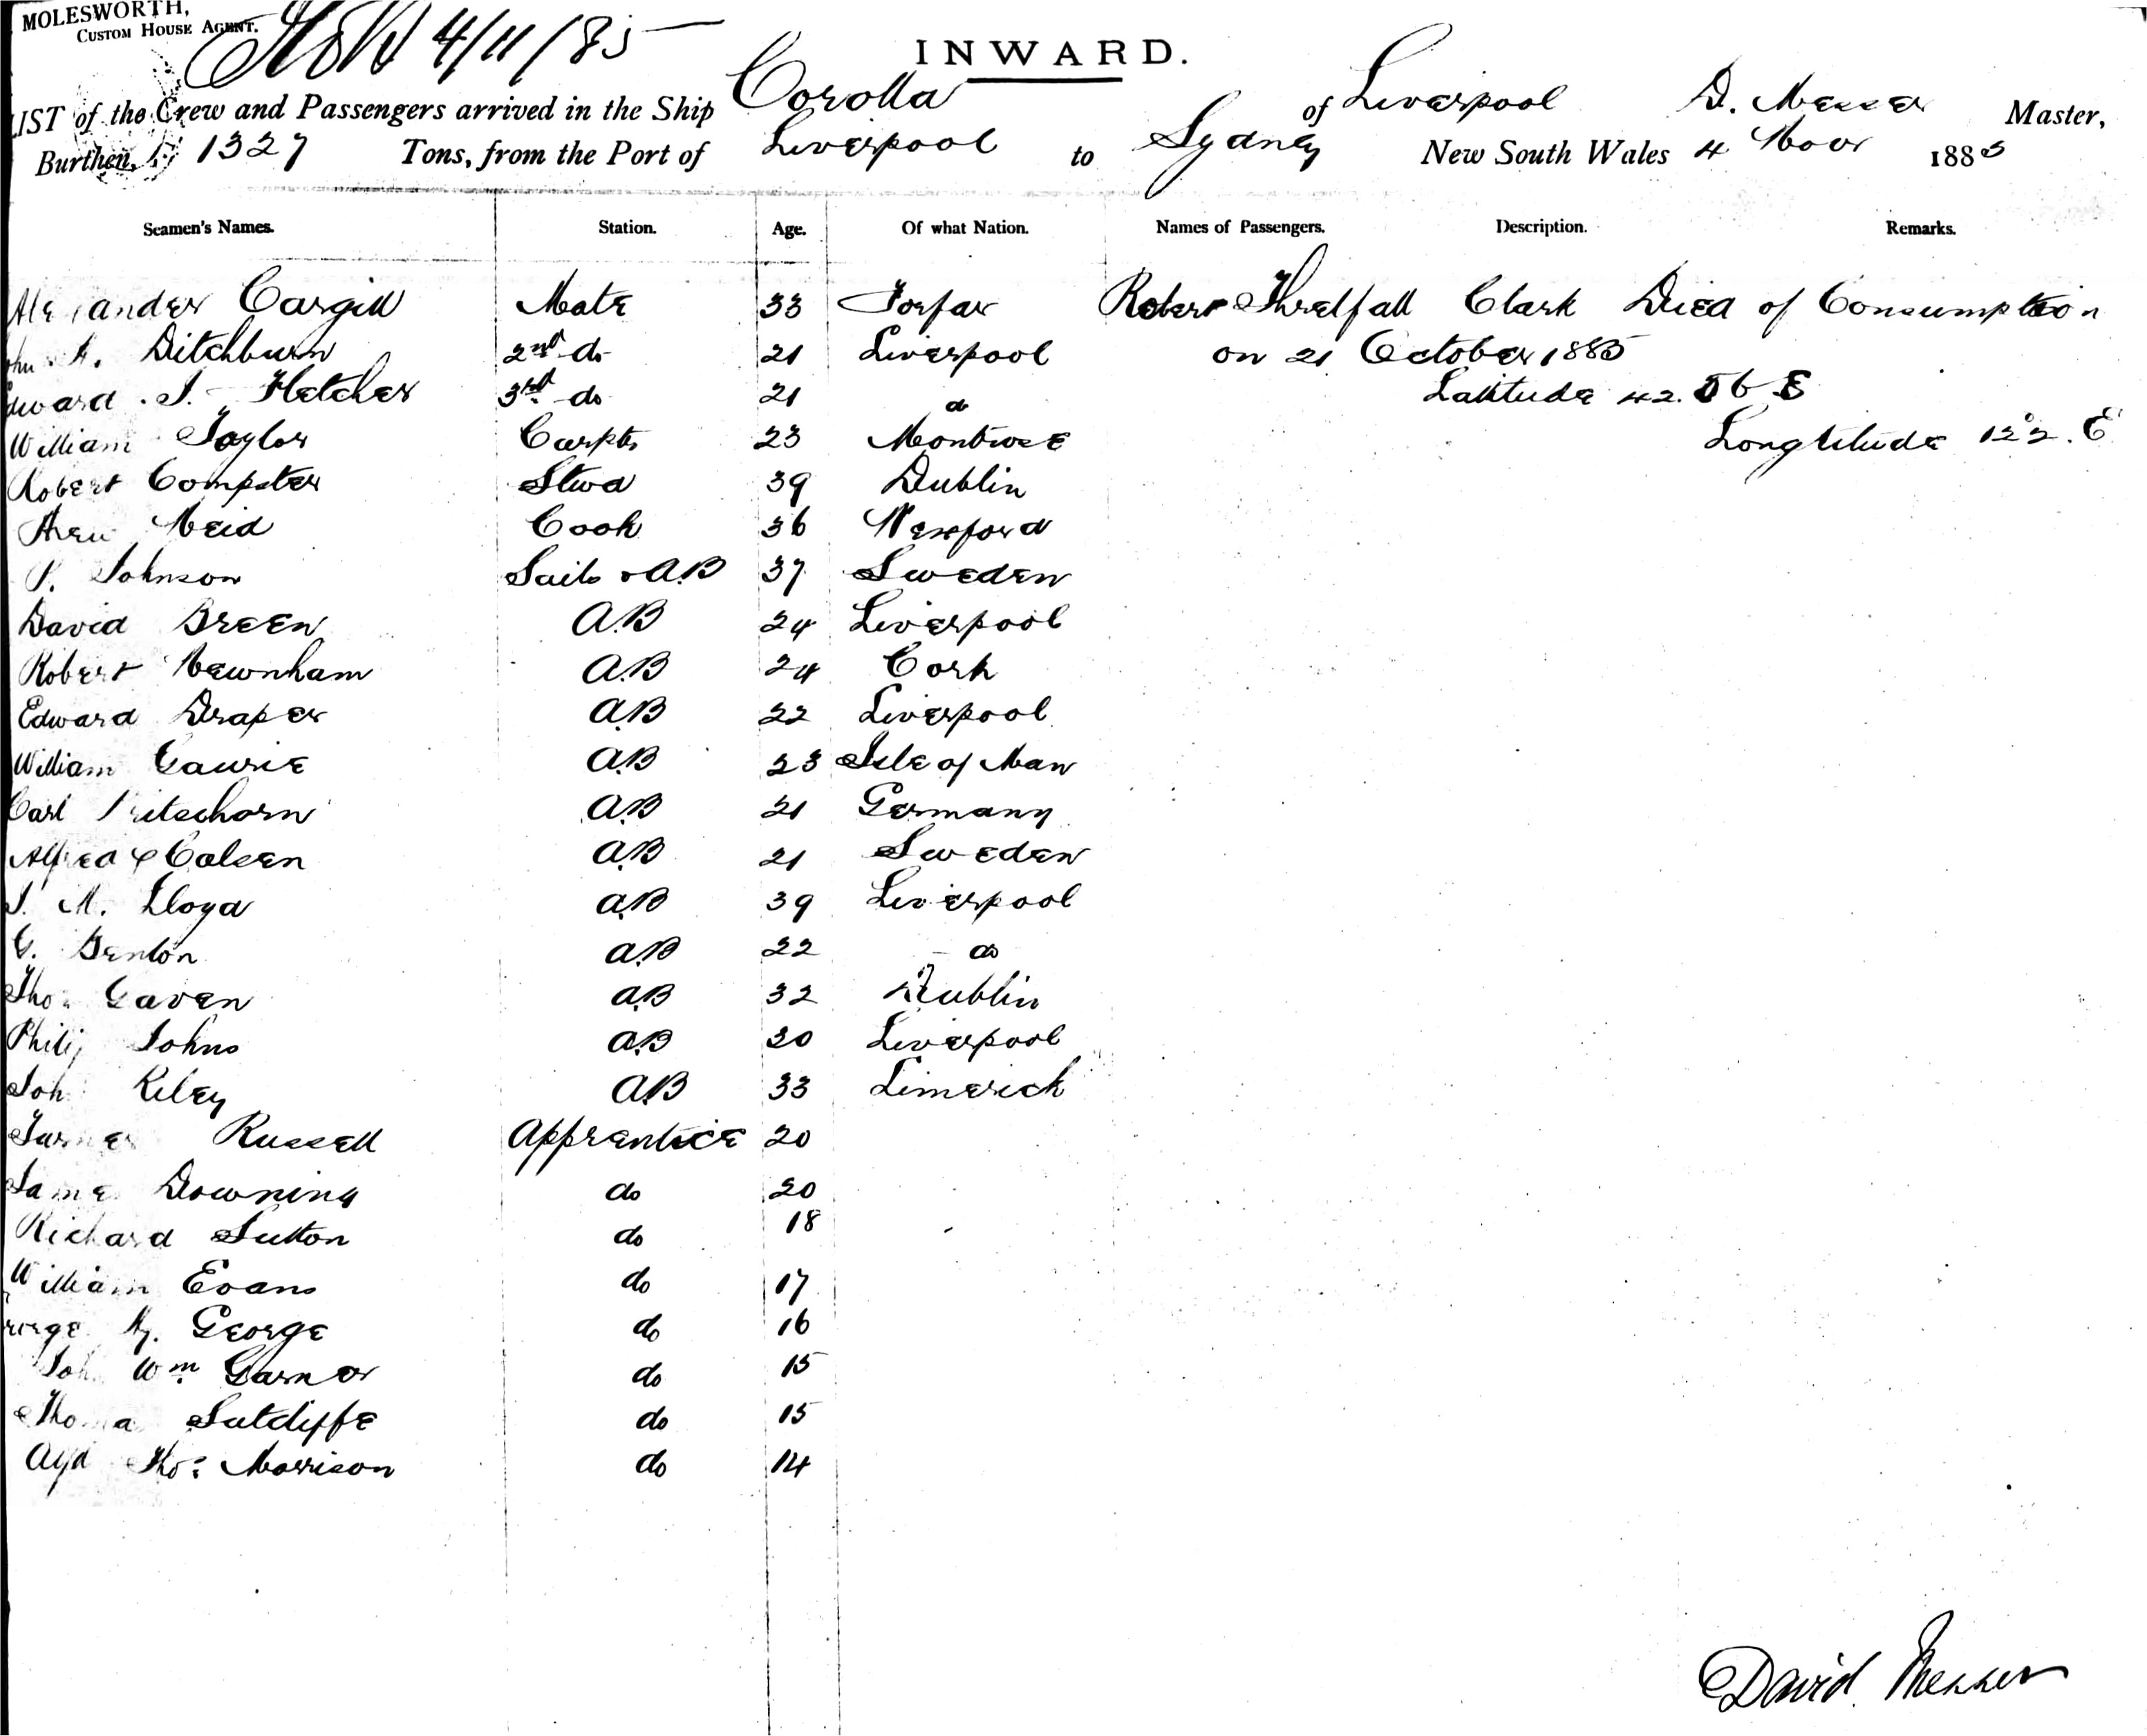 MOLESWORTH,
CUSTOM HOUSE AGENT.
4/11/85
INWARD.
LIST of the Crew and Passengers arrived in the Ship Corolla of Liverpool D. Messer Master,
Burthen, 1327 Tons, from the Port of Liverpool to Sydney New South Wales 4 Novr 1885
Seamen's Names. Station. Age. Of what Nation. Names of Passengers. Description. Remarks.
Alexander Cargill Mate 33 Forfar Robert Threlfall Clark Died of Consumption
Ditchburn 2nd do 21 Liverpool on 21 October 1885
Edward J. Fletcher 3rd do 21 do Latitude 42. 56 S
William Taylor Carptr 23 Montrose Longtitude 122. E
Robert Compster Stwd 39 Dublin
Reid Cook 36 Wexford
P. Johnson Sailr & A.B 37 Sweden
David Breen A.B 24 Liverpool
Robert Newnham A.B 24 Cork
Edward Draper A.B 22 Liverpool
William Gawrie A.B 23 Isle of Man
Carl A.B 21 Germany
Alfred A.B 21 Sweden
J. M. Lloyd A.B 39 Liverpool
G. A.B 22 do
Thos Gaven A.B 32 Dublin
Philip Johns A.B 20 Liverpool
John Riley A.B 33 Limerick
Turner Russell Apprentice 20
James Downing do 20
Richard Sutton do 18
William Evans do 17
George George do 16
John Wm Garner do 15
Thomas Sutcliffe do 15
Alfd Thos Morrison do 14
David Messer